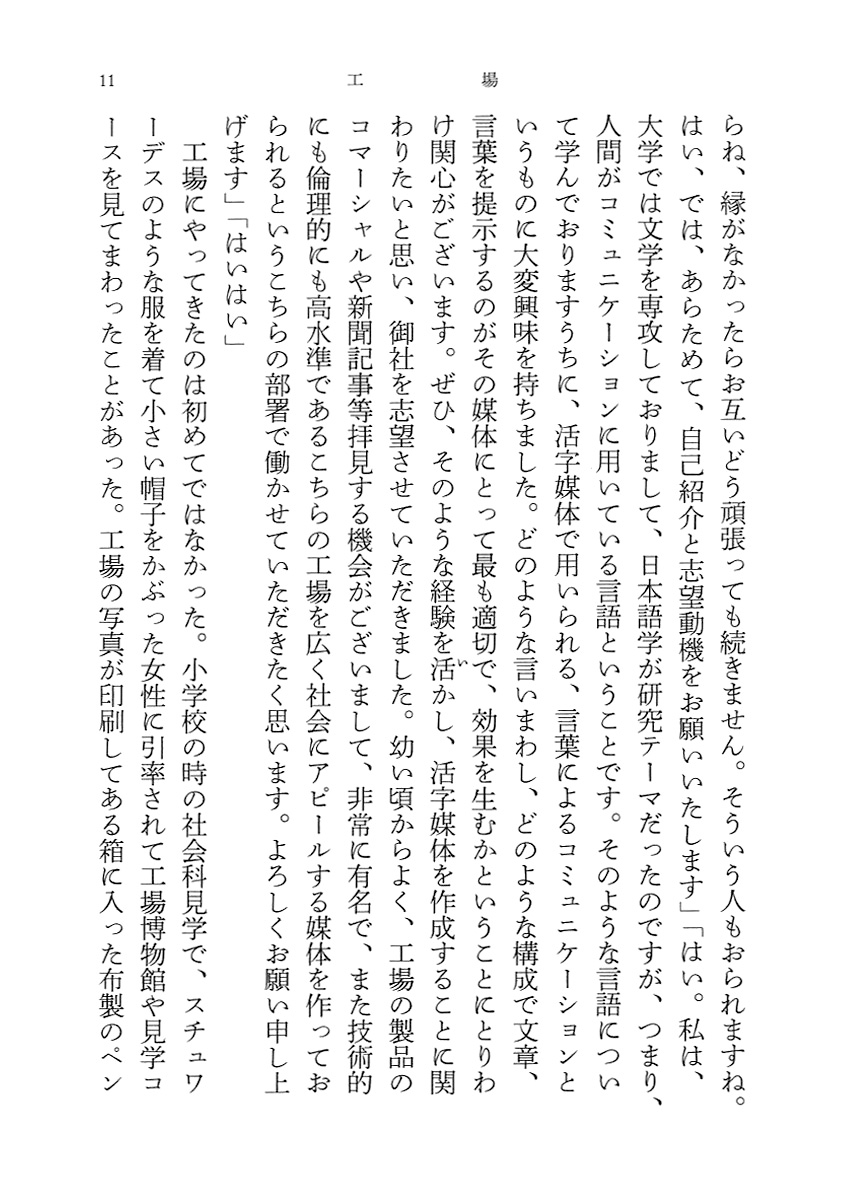 11
工場
らね、縁がなかったらお互いどう頑張っても続きません。そういう人もおられますね。
はい、では、あらためて、自己紹介と志望動機をお願いいたします」「はい。私は、
大学では文学を専攻しておりまして、日本語学が研究テーマだったのですが、つまり、
人間がコミュニケーションに用いている言語ということです。そのような言語につい
て学んでおりますうちに、活字媒体で用いられる、言葉によるコミュニケーションと
いうものに大変興味を持ちました。どのような言いまわし、どのような構成で文章、
言葉を提示するのがその媒体にとって最も適切で、効果を生むかということにとりわ
け関心がございます。ぜひ、そのような経験を活いかし、活字媒体を作成することに関
わりたいと思い、御社を志望させていただきました。幼い頃からよく、工場の製品の
コマーシャルや新聞記事等拝見する機会がございまして、非常に有名で、また技術的
にも倫理的にも高水準であるこちらの工場を広く社会にアピールする媒体を作ってお
られるというこちらの部署で働かせていただきたく思います。よろしくお願い申し上
げます」「はいはい」
　工場にやってきたのは初めてではなかった。小学校の時の社会科見学で、スチュワ
ーデスのような服を着て小さい帽子をかぶった女性に引率されて工場博物館や見学コ
ースを見てまわったことがあった。工場の写真が印刷してある箱に入った布製のペン